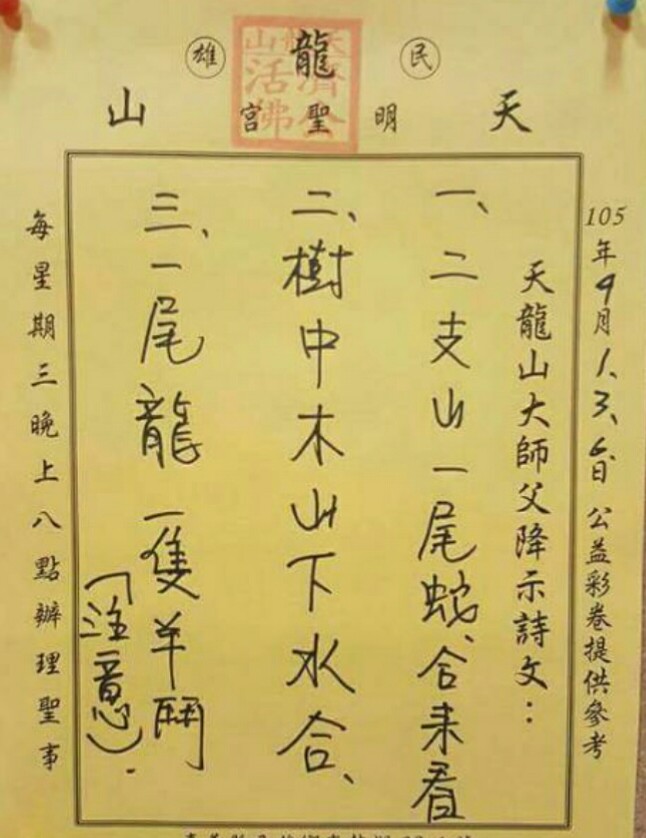 雄 龍 民
山 宮聖明 天
天龍山
濟公
活佛
105年9月1、3、6日 公益彩卷提供參考
天龍山大師父降示詩文：
一、二支山一尾蛇、合來看
二、樹中木山下水合、
三、一尾龍一隻羊鬥
（注意）．
每星期三晚上八點辦理聖事